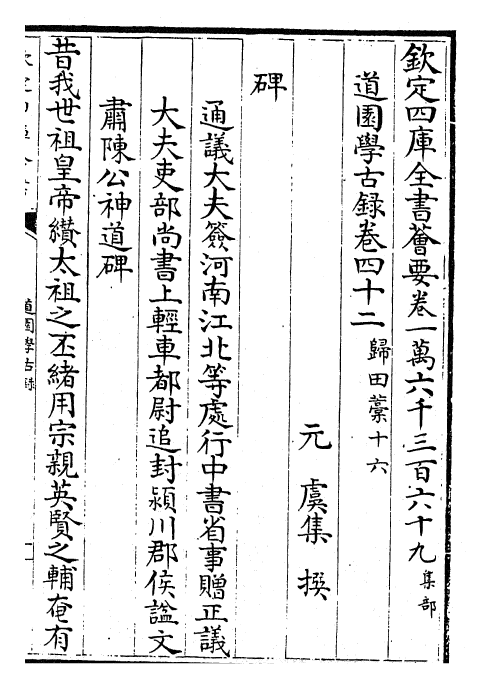 欽定四庫全書薈要卷一萬六千三百六十九 集部
道園學古録卷四十二 歸田藁十六
元 虞集 撰
碑
通議大夫簽河南江北等處行中書省事贈正議
大夫吏部尚書上輕車都尉追封潁川郡侯諡文
肅陳公神道碑
昔我世祖皇帝纘太祖之丕緒用宗親英賢之輔奄有
道園學古録